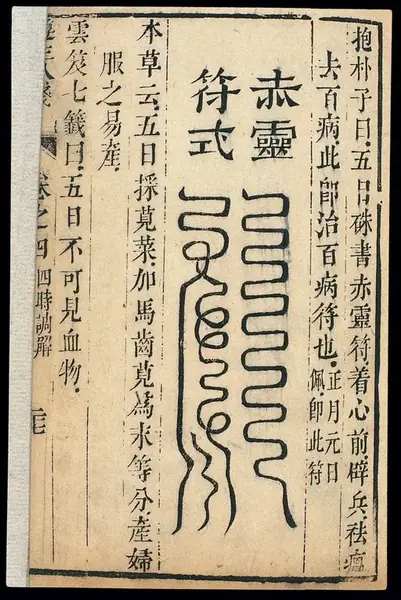 抱朴子曰.五日硃書赤靈符.着心前.辟兵.祛瘟
去百病.此卽治百病符也.正月元日佩.卽此符
赤靈
符式
本草云.五日採莧菜.加馬齒莧爲末.等分.產婦
服之易產.
雲笈七籤曰.五日不可見血物.
卷之四 四時調解